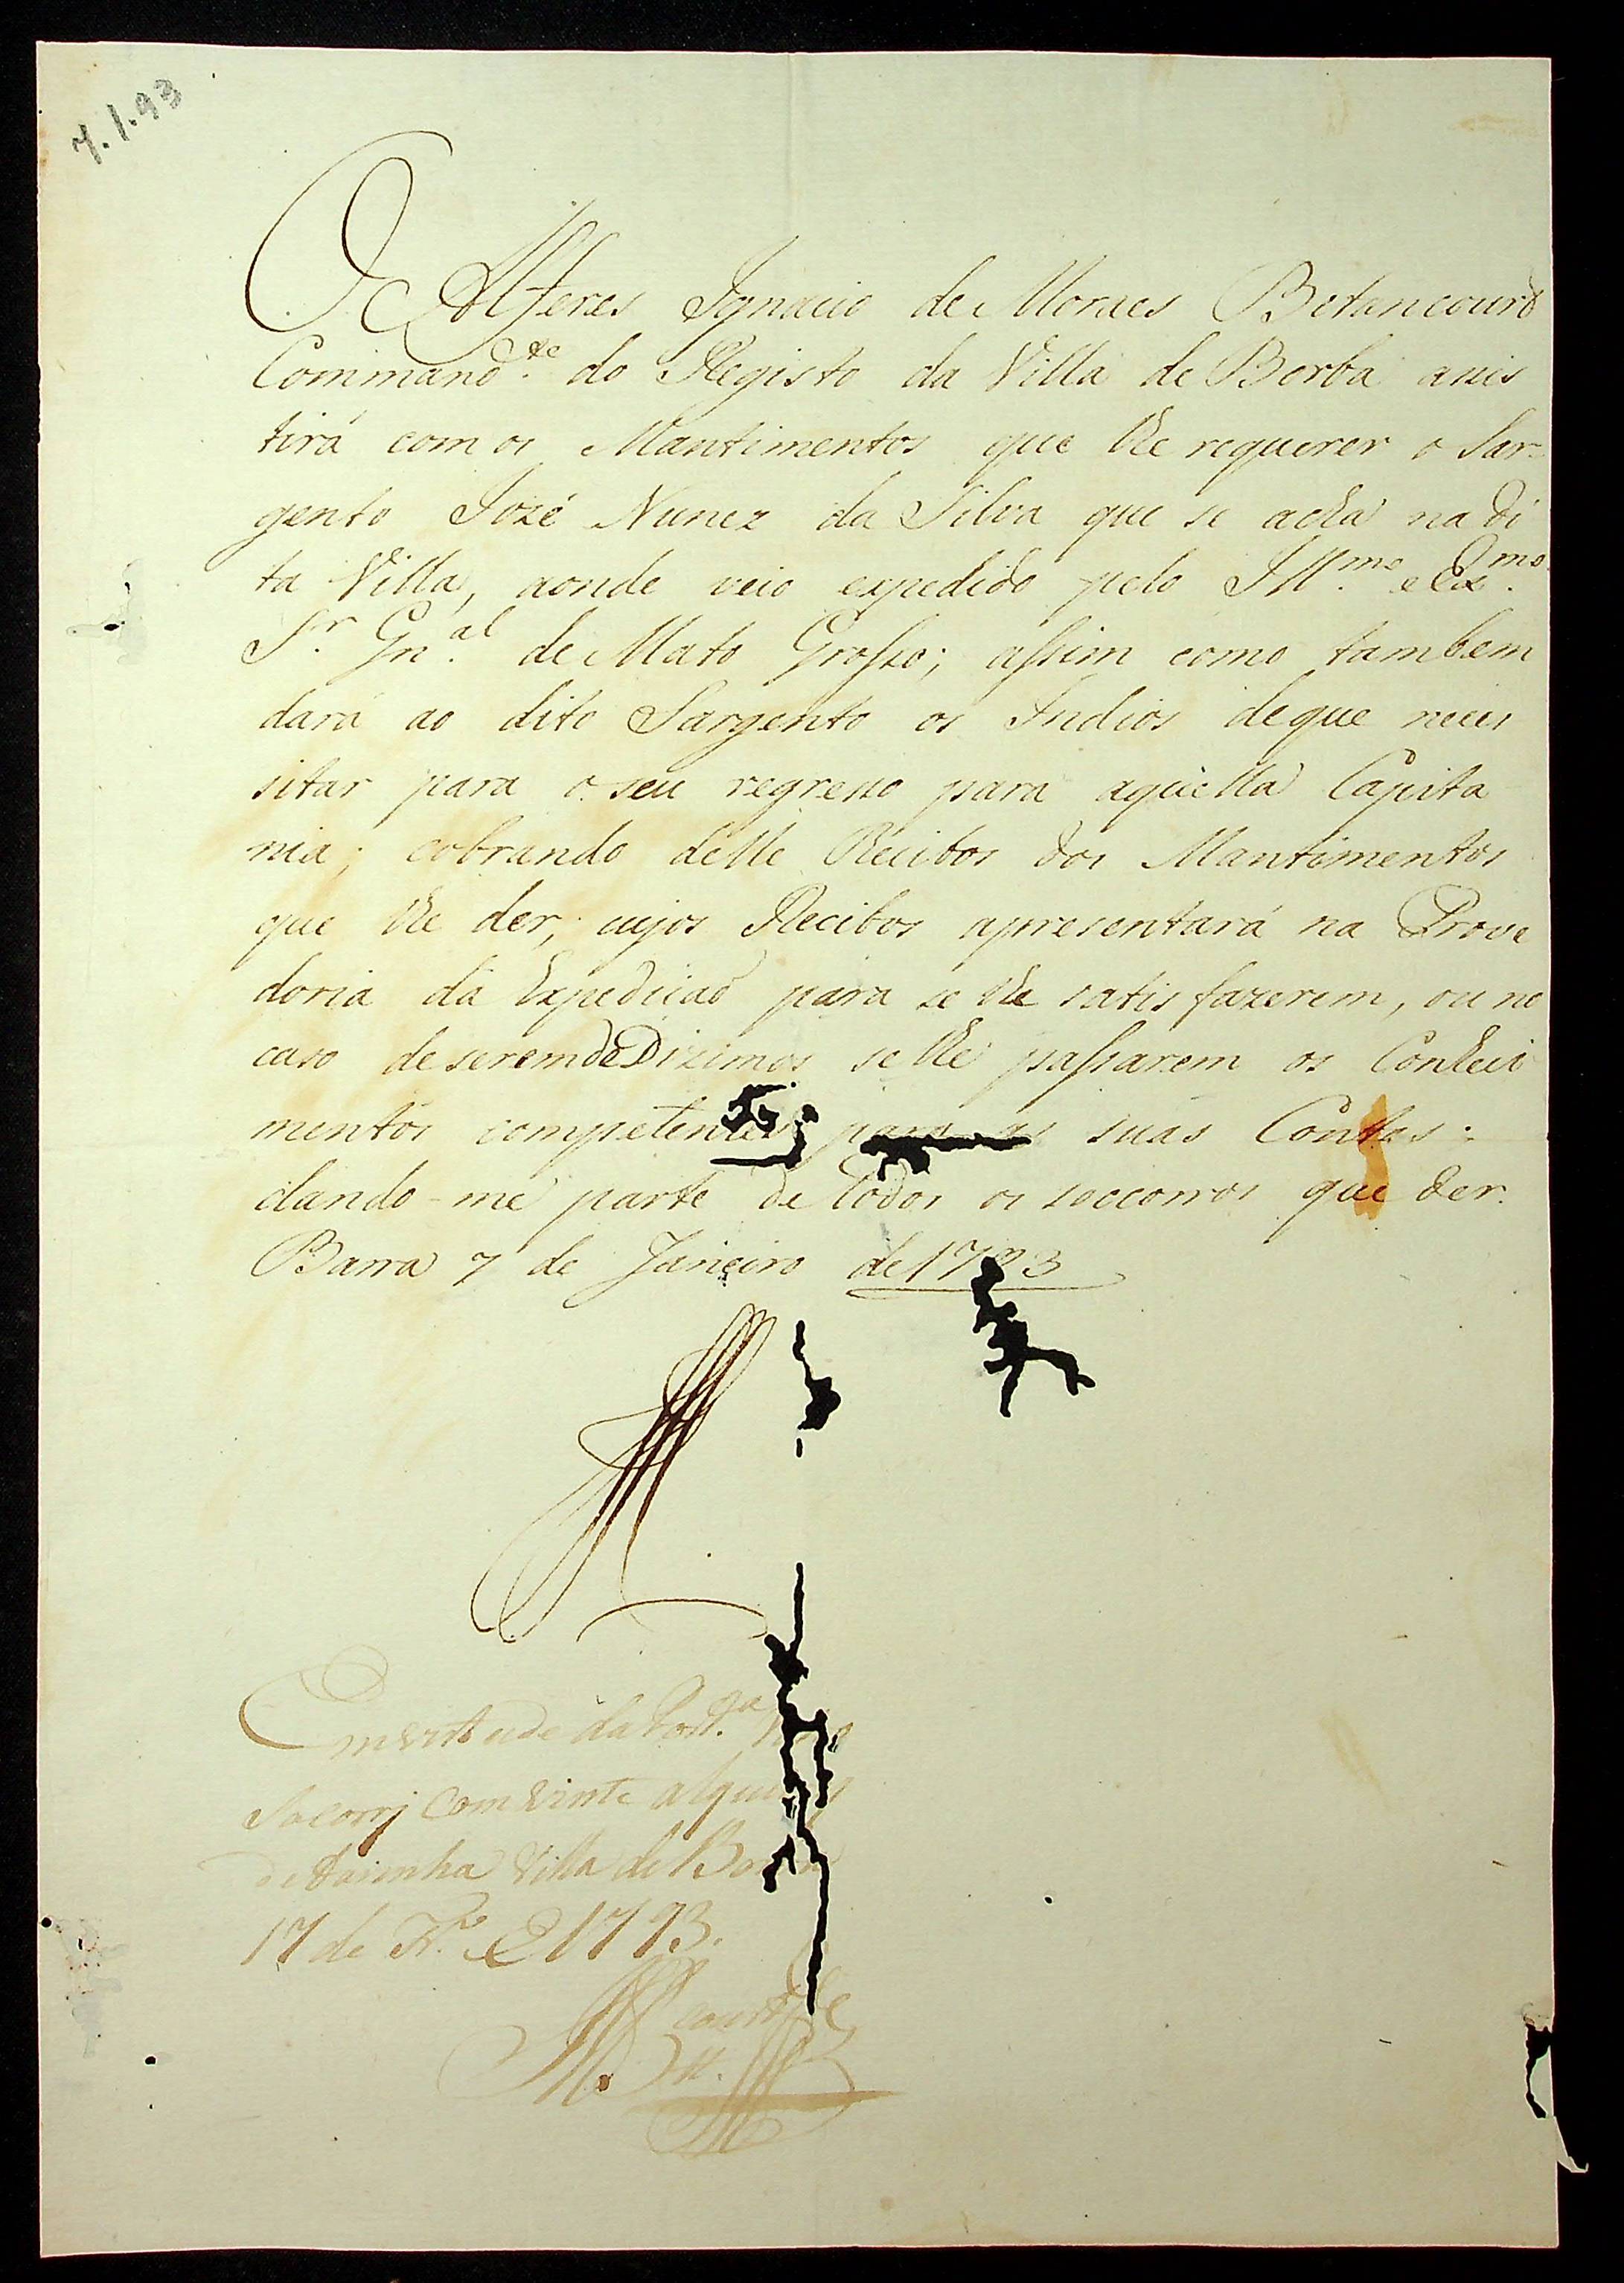 7.1.93
O Alferes Ignacio de Moraes Betancourt
Command.te do Registo da Villa de Borba assis
tirá com os Mantimentos que lhe requerer o Sar=
gento Jozé Nunez da Silva que se acha na di
ta Villa, aonde veio expedido pelo Ill.mo e Ex.mo
S.r Gn.al de Mato Grosso; assim como tambem
dará ao dito Sargento os Indios de que neces
sitar para o seu regresso para aquella Capita
nia; cobrando delle Recibos dos Mantimentos
que lhe der; cujos Recibos apresentará na Prove
doria da Expedicaõ para se lhe satisfazerem, ou no
caso de serem de Dizimos se lhe passarem os Conheci
mentos competentes para as suas Contas:
dando-me parte de todos os soccorros que der.
Barra 7 de Janeiro de 1793
Em virtude da Port.a
Socorrj com vinte alqu
de farinha Villa de Borba
17 de Fr.o de 1793.